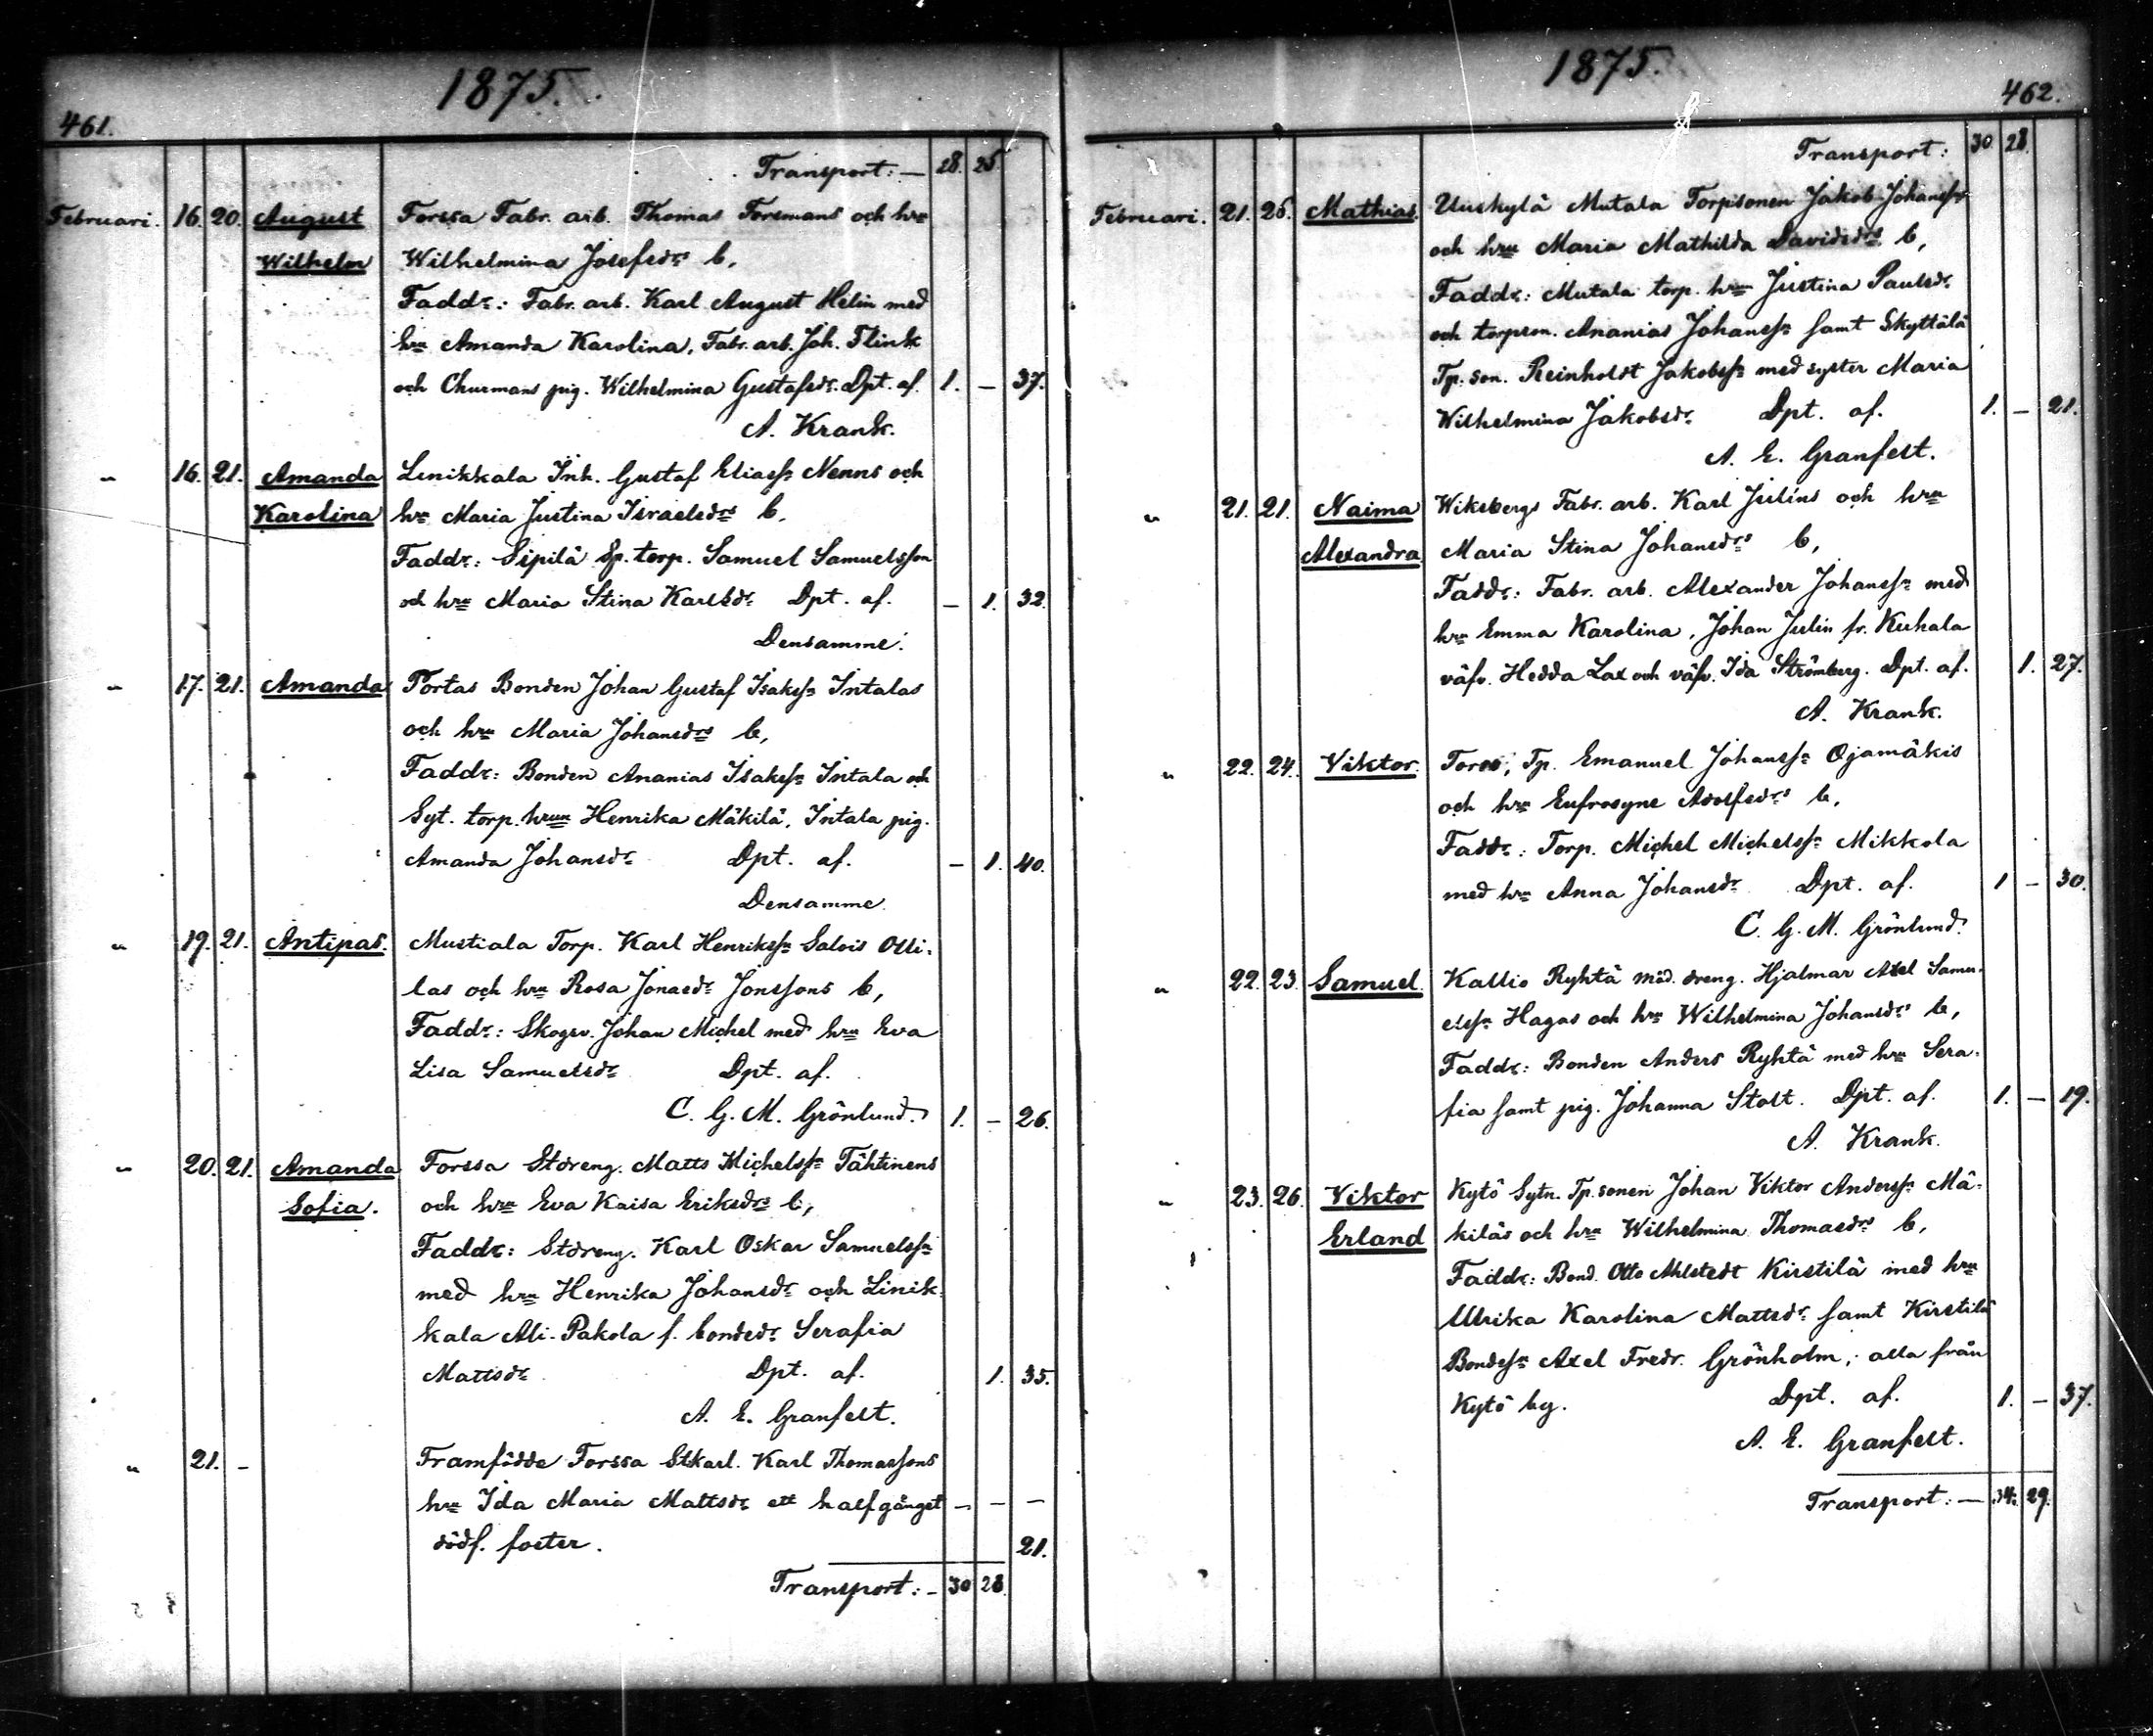 1875.
461.
Transport: — 28. 25.
Februari. 16. 20. August Forssa Fabr. arb. Thomas Forsmans och hru
Wilhelm Wilhelmina Josefsdrs b,
Faddr: Fabr. arb. Karl August Helin med
hru Amanda Karolina, Fabr. arb. Joh. Flink
och Churmans pig. Wilhelmina Gustafsdr. Dpt. af. 1. — 37.
A. Krank.
" 16. 21. Amanda Linikkala Inh. Gustaf Eliasssn Nenns och
Karolina hru Maria Justina Israelsdrs b.
Faddr: Sipilä Sp. torp. Samuel Samuelsson
och hru Maria Stina Karlsdr Dpt. af. — 1. 32.
Densamme.
" 17. 21. Amanda Portas Bonden Johan Gustaf Isakssn Intalas
och hru Maria Johansdrs b,
Faddr: Bonden Ananias Isakssn Intala och
Syt. torp. hrun Henrika Mäkilä, Intala pig.
Amanda Johansdr Dpt. af. — 1. 40.
Densamme.
" 19. 21. Antipas. Mustiala Torp. Karl Henrikssn Salois Olli-
las och hru Rosa Jonasdr Jonssons b,
Faddr: Skogsv. Johan Michel med hru Eva
Lisa Samuelsdr Dpt. af.
C. G. M. Grönlund. 1. — 26.
" 20. 21. Amanda Forssa Stdreng. Matts Michelssn Tähtinens
Sofia. och hru Eva Kaisa Eriksdrs b,
Faddr: Stdreng. Karl Oskar Samuelssn
med hru Henrika Johansdr och Linik-
kala Ali-Pakola f. bondedr Serafia
Mattsdr Dpt. af. 1. 35.
A. E. Granfelt.
" 21. — Framfödde Forssa Stkarl. Karl Thomassons
hru Ida Maria Mattsdr ett halfgånget — — —
dödf. foster. 21.
Transport: — 30 28.
1875.
462.
Transport: 30 28.
Februari. 21. 26. Mathias. Uuskylä Mutala Torpsonen Jakob Johanssn
och hru Maria Mathilda Davidsdrs b,
Faddr: Mutala torp. hru Justina Paulsdr
och torpson. Ananias Johanssn samt Skyttälä
Tp. son. Reinholdt Jakobssn med syster Maria
Wilhelmina Jakobsdr Dpt. af. 1. — 21.
A. E. Granfelt.
" 21. 21. Naima Wiksbergs Fabr. arb. Karl Julins och hru
Alexandra Maria Stina Johansdrs b,
Faddr: Fabr. arb. Alexander Johanssn med
hru Emma Karolina, Johan Julin fr. Kuhala
väfv. Hedda Lax och väfv. Ida Strömberg. Dpt. af. 1. 27.
A. Krank.
" 22. 24. Viktor. Torro, Tp. Emanuel Johanssn Ojamäkis
och hru Eufrosyne Adolfsdrs b,
Faddr: Torp. Michel Michelssn Mikkola
med hru Anna Johansdr Dpt. af. 1 — 30.
C. G. M. Grönlund.
" 22. 23. Samuel. Kallio Ryhtä måd. dreng. Hjalmar Axel Samu-
elssn Hagas och hru Wilhelmina Johansdrs b,
Faddr: Bonden Anders Ryhtä med hru Sera-
fia samt pig. Johanna Stolt. Dpt. af. 1. — 19.
A. Krank.
" 23. 26. Viktor Kytö Sytn. Tp. sonen Johan Viktor Anderssn Mä-
Erland kiläs och hru Wilhelmina Thomasdrs b,
Faddr: Bond. Otto Ahlstedt Kirstilä med hru
Ulrika Karolina Mattsdr samt Kirstilä
Bondessn Axel Fredr. Grönholm, alla från
Kytö by. Dpt. af. 1. — 37.
A. E. Granfelt.
Transport: — 34. 29.